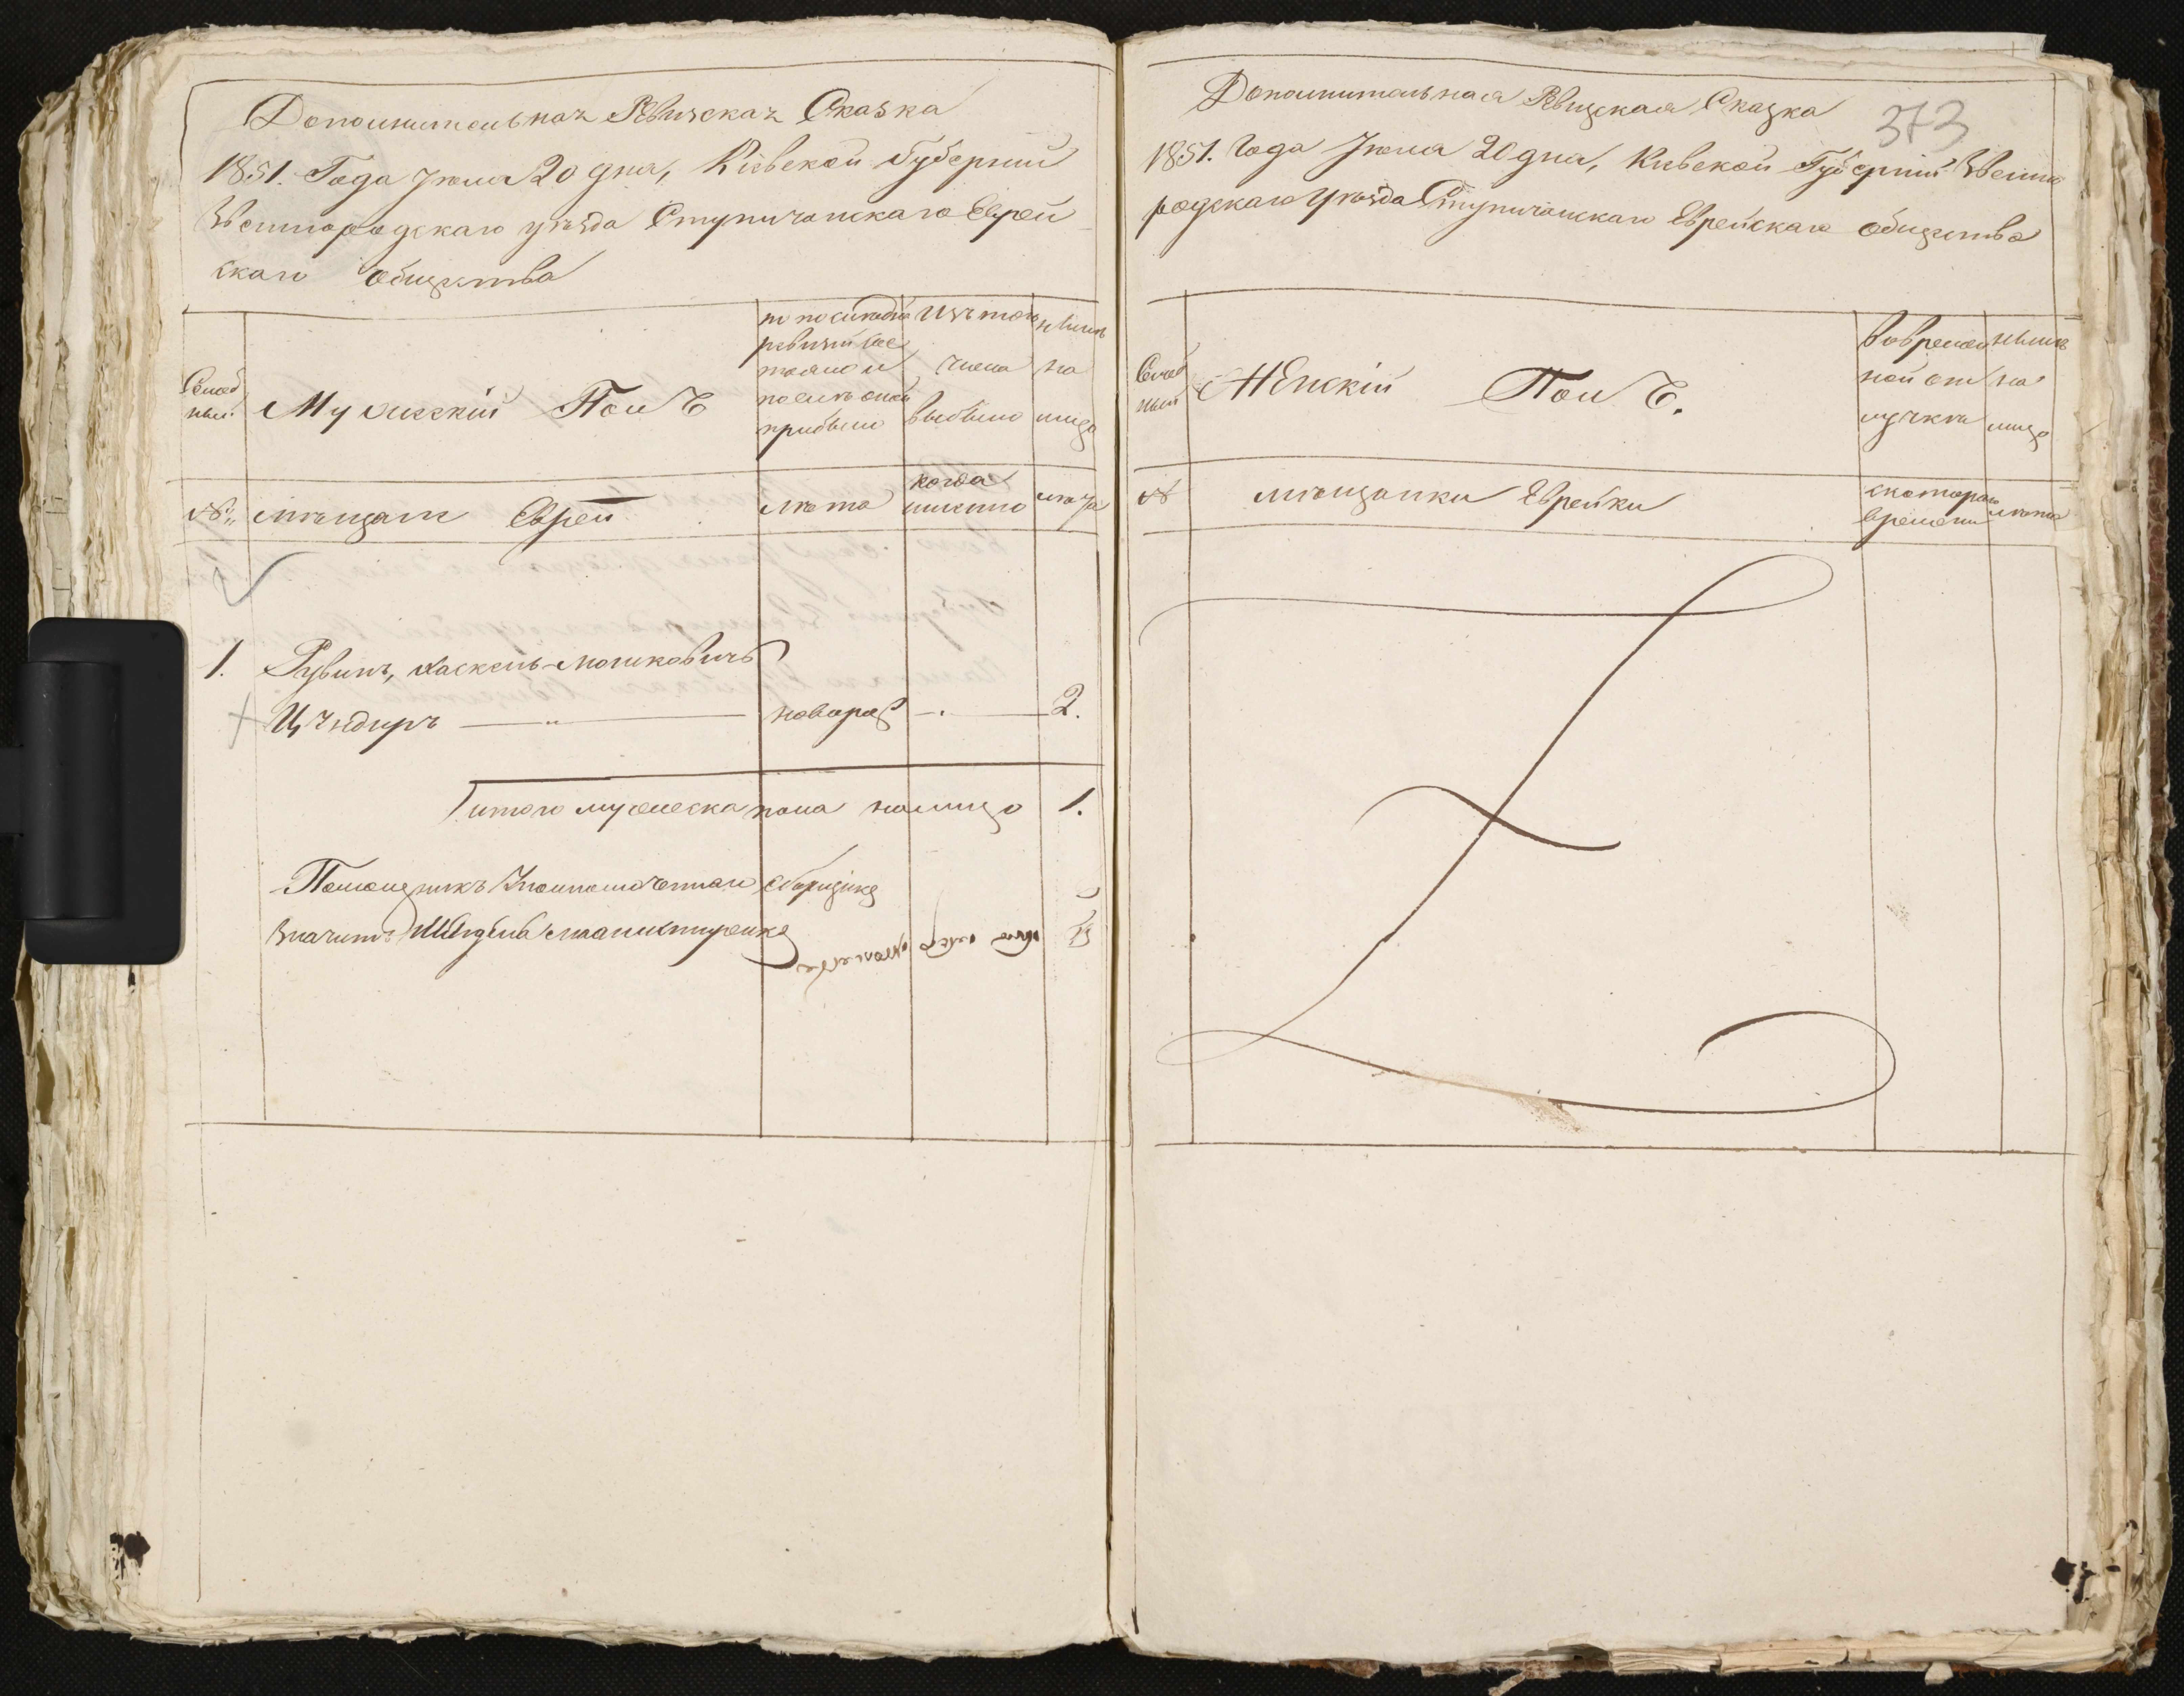 Дополнительная Ревизская Сказка
1851. Года Июля 20 дня, Кіевской Губерніи
Звенигородскаго уѣзда Ступичанскаго Еврей
скаго общества
Семей
ныи
Мужескій Полъ
по последней
ревизіи со
стояло и
после оной
прибыло
Изъ того
числа
выбыло
нынѣ
на
лицо
№
мѣщане Евреи
лета
когда
именно
лета
1. Рувинъ, Хаскель-Мошковичъ
Цындиръ — " — новорож — . — 2.
Итого мужеска пола налицо 1.
Помощникъ Уполномоченнаго Сборщика
Значитъ
Дополнительная Ревизская Сказка
373
1851. Года Июля 20 дня, Кіевской Губерніи Звениго
родскаго Уѣзда Ступичанскаго Еврейскаго общества
Семей
ный
Женскій Полъ.
Во времен
ной от
лучкѣ
нынѣ
на
лицо
№
мѣщанки Еврейки
с котораго
времени
лета